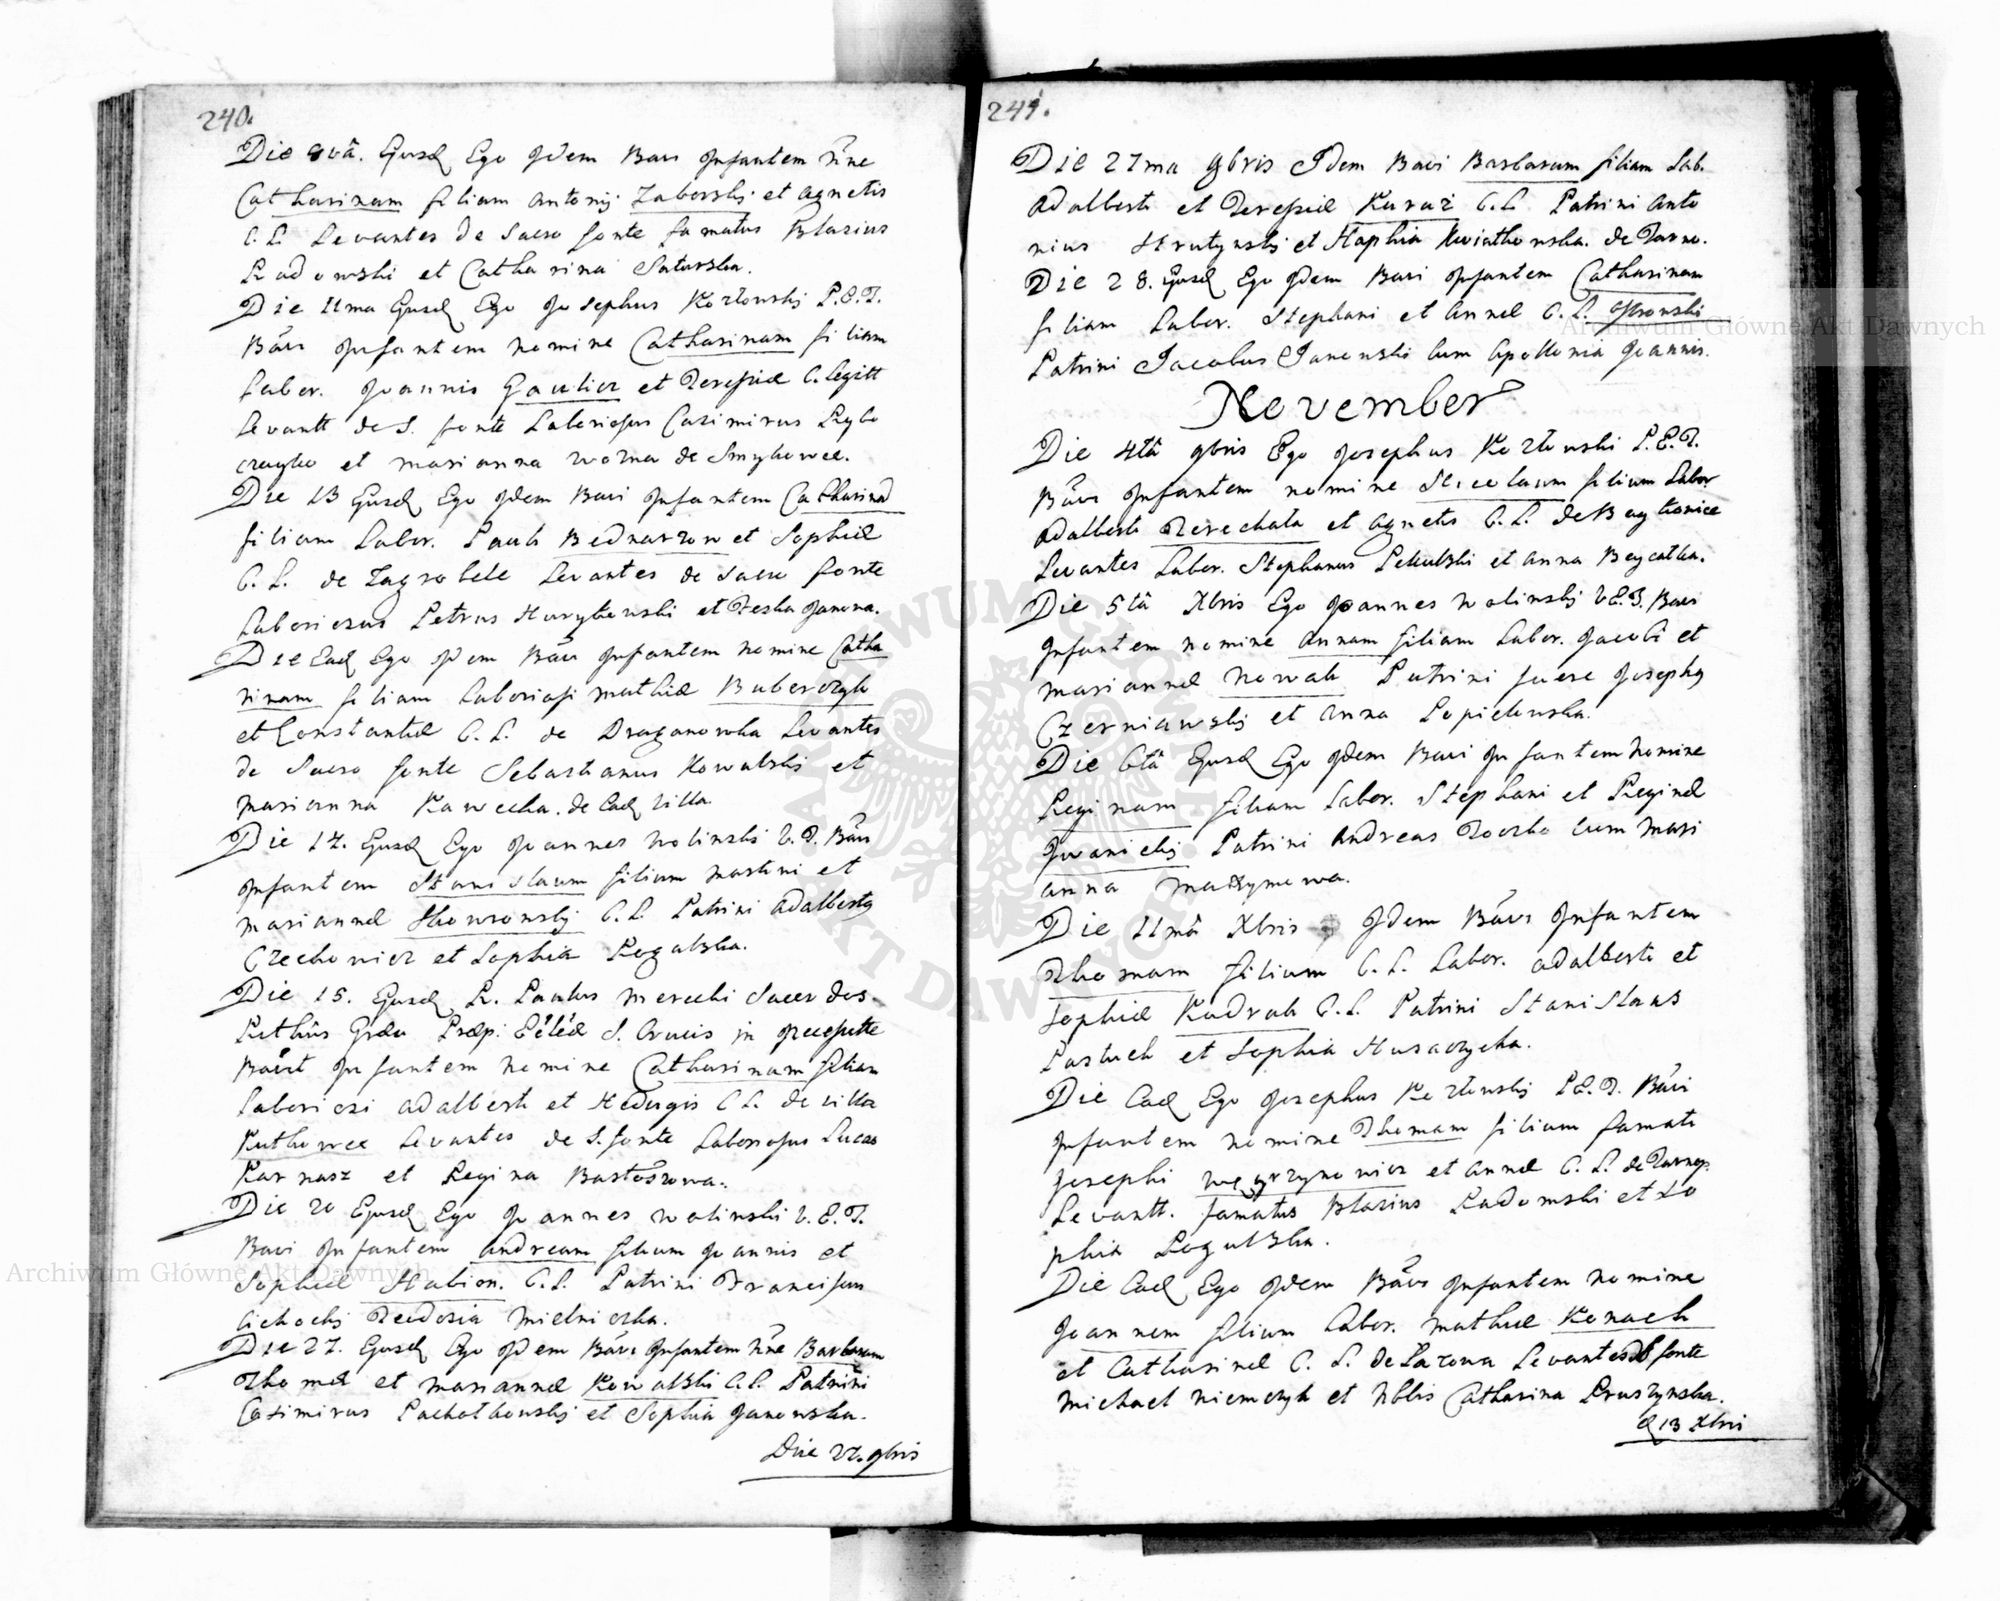 240.
Die 9vâ. Ejusd Ego Idem Bavi Infantem nne
Catharinam filiam Antonij Zaborskj et Agnetis
C. L. Levantes de Sacro fonte famatus Blasius
Radowski et Catharina Saturska.
Die 11ma Ejusd Ego Josephus Kozłowskj P.E.T.
Bavi Infantem nomine Catharinam filiam
Labor. Joannis Gaulicz et Teresiæ C. Legitt
Levantt de S. fonte Laboriosus Casimirus Rybo
czayko et Marianna Wozna de Smykowce.
Die 13 Ejusd Ego Idem Bavi Infantem Catharina
filiam Labor. Pauli Bednarzow et Sophiæ
C. L. de Zagrobele Levantes de Sacro fonte
Laboriosus Petrus Hurykowski et Teska Janowa.
Die Ead Ego Idem Bavi Infantem nomine Catha
rinam filiam Laboriosi Mathiæ Buberczyk
et Constantiæ C. L. de Draganowka Levantes
de Sacro fonte Sebastianus Kowalskj et
Marianna Kawecka. de Ead Villa.
Die 14. Ejusd Ego Joannes Wolinski V. T. Bavi
Infantem Stanislaum filium Martini et
Mariannæ Skowronskj C. L. Patrini Adalbertg
Czechowicz et Sophia Rogalska.
Die 15. Ejusd R. Paulus Merecki Sacerdos.
Rithûs Græci Præp: Ecclæ S. Crucis in
Bavit Infantem nomine Catharinam filiam
Laboriosi Adalberti et Hedvigis C L. de villa
Kutkowce Levantes de S. fonte Laboriosus Lucas
Karnasz et Regina Bartoszowa.
Die 20 Ejusd Ego Joannes Wolinski V. E. T.
Bavi Infantem Andream filium Joannis et
Sophiæ Stabion. C. L. Patrini Franciscus
Cichockj Teodozia Mielniczka.
Die 27. Ejusd Ego Idem Bavi Infantem nne Barbaram
Thomæ et Mariannæ Kowalski C. L. Patrini
Casimirus Pachołkowskj et Sophia Janowska.
Die 27. 9bris
241.
Die 27ma 9bris Idem Bavi Barbaram filiam Lab.
Adalberti et Teresiæ Kuraż C. L. Patrini Anto
nius Strutynskj et Sophia Kwiatkowska. de Tarno.
Die 28. Ejusd Ego Idem Bavi Infantem Catharinam
filiam Labor. Stephani et Annæ C. L. Ostrowski
Patrini Jacobus Janowski cum Apollonia Joannis.
November
Die 4tâ 9bris Ego Josephus Kozłowski P.E.T.
Bavi Infantem nomine Nicolaum filium Labor
Adalberti Terechala et Agnetis C. L. de Baykowice
Levantes Labor. Stephanus Pekulski et Anna Beycatka.
Die 5tâ Xbris Ego Joannes Wolinskj V.E.T. Bavi
Infantem nomine Annam filiam Labor. Jacobi et
Mariannæ Nowak Patrini fuere Josephg
Czerniawskj et Anna Lopielewska.
Die 6tâ Ejusd Ego Idem Bavi Infantem nomine
Reginam filiam Labor. Stephani et Reginæ
Iwanickj Patrini Andreas Toczko cum Mari
anna Maxymowa.
Die 11mâ Xbris Idem Bavi Infantem
Thomam filium C. L. Labor. Adalberti et
Sophiæ Kudrak C. L. Patrini Stanislaus
Pastuch et Sophia Husarzycka.
Die Ead Ego Josephus Kozłowskj P.E.T. Bavi
Infantem nomine Thomam filium famati
Josephi Węgrzynowicz et Annæ C. L. de Tarnop.
Levantt. famatus Blasius Radomski et So
phia Rogulska.
Die Ead Ego Idem Bavi Infantem nomine
Joannem filium Labor. Mathiæ Konach
et Catharinæ C. L. de Lozowa Levantes de S fonte
Michael Niemczyk et Nblis Catharina Pruszynska.
D 13 Xbri
Archiwum Główne Akt Dawnych
Archiwum Główne Akt Dawnych
ARCHIWUM GŁÓWNE AKT DAWNYCH